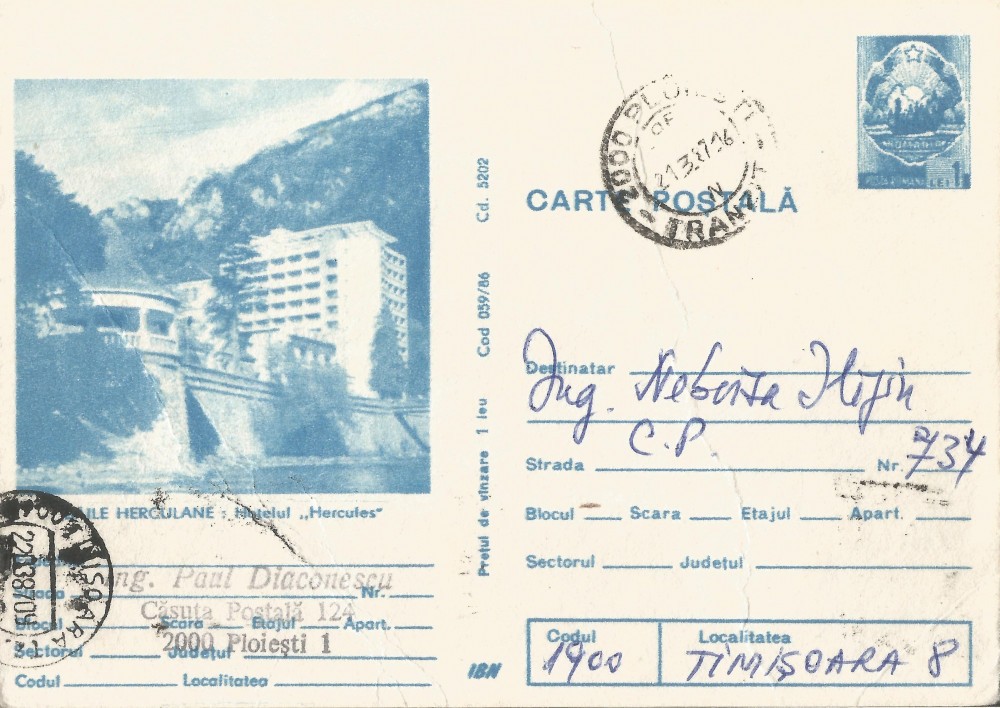 CARTE POȘTALĂ
2000 PLOIEȘTI
21.3.87.16
TRANZIT
ROMANIA
POSTA ROMANA
LEI 1
Cd. 5202
Cod 059/86
Prețul de vînzare 1 leu
ILE HERCULANE : Hotelul „Hercules”
Destinatar
Ing. Neboisa Iligin
C.P
Strada Nr. 734
Blocul Scara Etajul Apart.
Sectorul Județul
Codul Localitatea
1900 TIMIȘOARA 8
1900 TIMIȘOARA
22.03.87.09
ng. Paul Diaconescu
Strada Nr.
Căsuța Poștală 124
Blocul Scara Etajul Apart.
2000 Ploiești 1
Sectorul Județul
Codul Localitatea
IBN